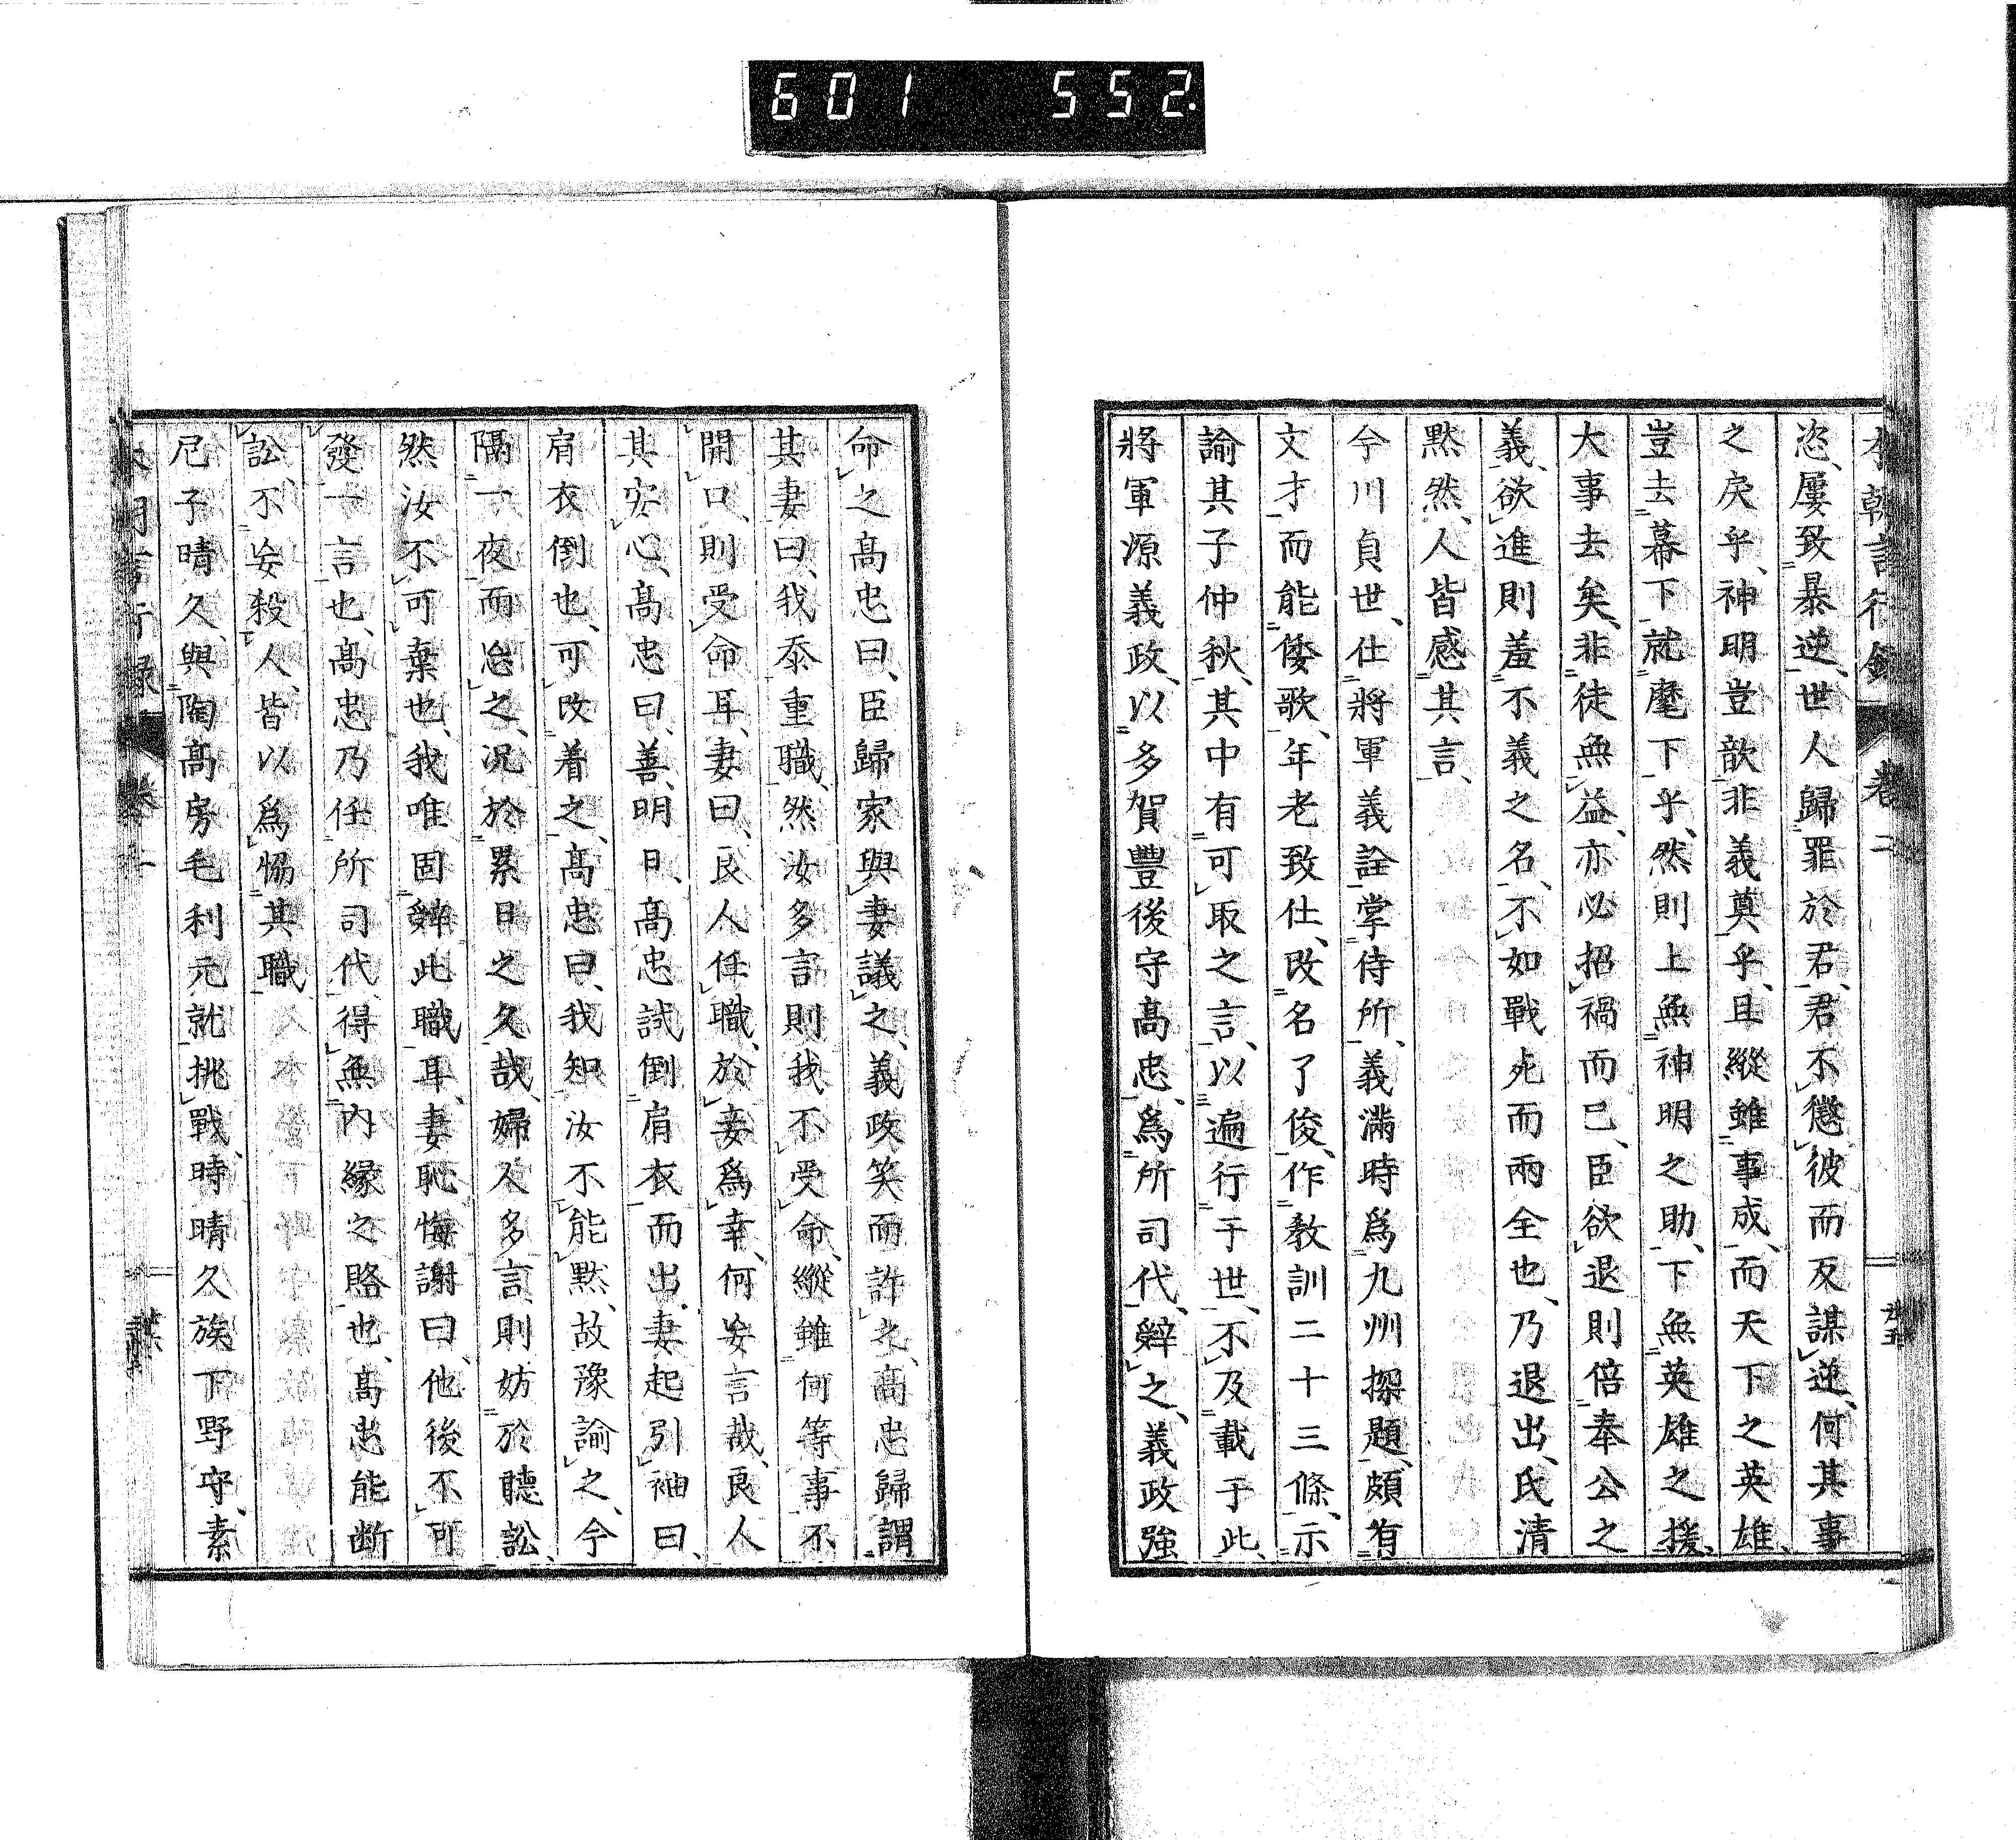 601 552.
本朝言行録 卷二
恣、屢致暴逆、世人歸罪於君、君不懲彼而反謀逆、何其事
之戾乎、神明豈歆非義奠乎、且縱雖事成、而天下之英雄、
豈去幕下就麾下乎、然則上無神明之助、下無英雄之援、
大事去矣、非徒無益、亦必招禍而已、臣欲退則倍奉公之
義、欲進則羞不義之名、不如戰死而兩全也、乃退出、氏清
黙然、人皆感其言、
今川貞世、仕將軍義詮掌侍所、義滿時爲九州探題、頗有
文才而能倭歌、年老致仕、改名了俊、作教訓二十三條、示
諭其子仲秋、其中有可取之言、以遍行于世、不及載于此、
將軍源義政、以多賀豐後守高忠、爲所司代、辭之、義政強
命之高忠曰、臣歸家與妻議之、義政笑而許之、高忠歸謂
其妻曰、我忝重職、然汝多言則我不受命、縱雖何等事不
開口、則受命耳、妻曰、良人任職、於妾爲幸、何妄言哉、良人
其安心、高忠曰、善、明日、高忠試倒肩衣而出、妻起引袖曰、
肩衣倒也、可改着之、高忠曰、我知汝不能黙、故豫諭之、今
隔一夜而怠之、况於累日之久哉、婦人多言、則妨於聽訟、
然汝不可棄也、我唯固辭此職耳、妻恥悔謝曰、他後不可
發一言也、高忠乃任所司代、得無內縁之賂也、高忠能断
訟、不妄殺人、皆以爲恊其職
尼子晴久、與陶高房毛利元就挑戰、時晴久族下野守、素
本朝言行録 卷二